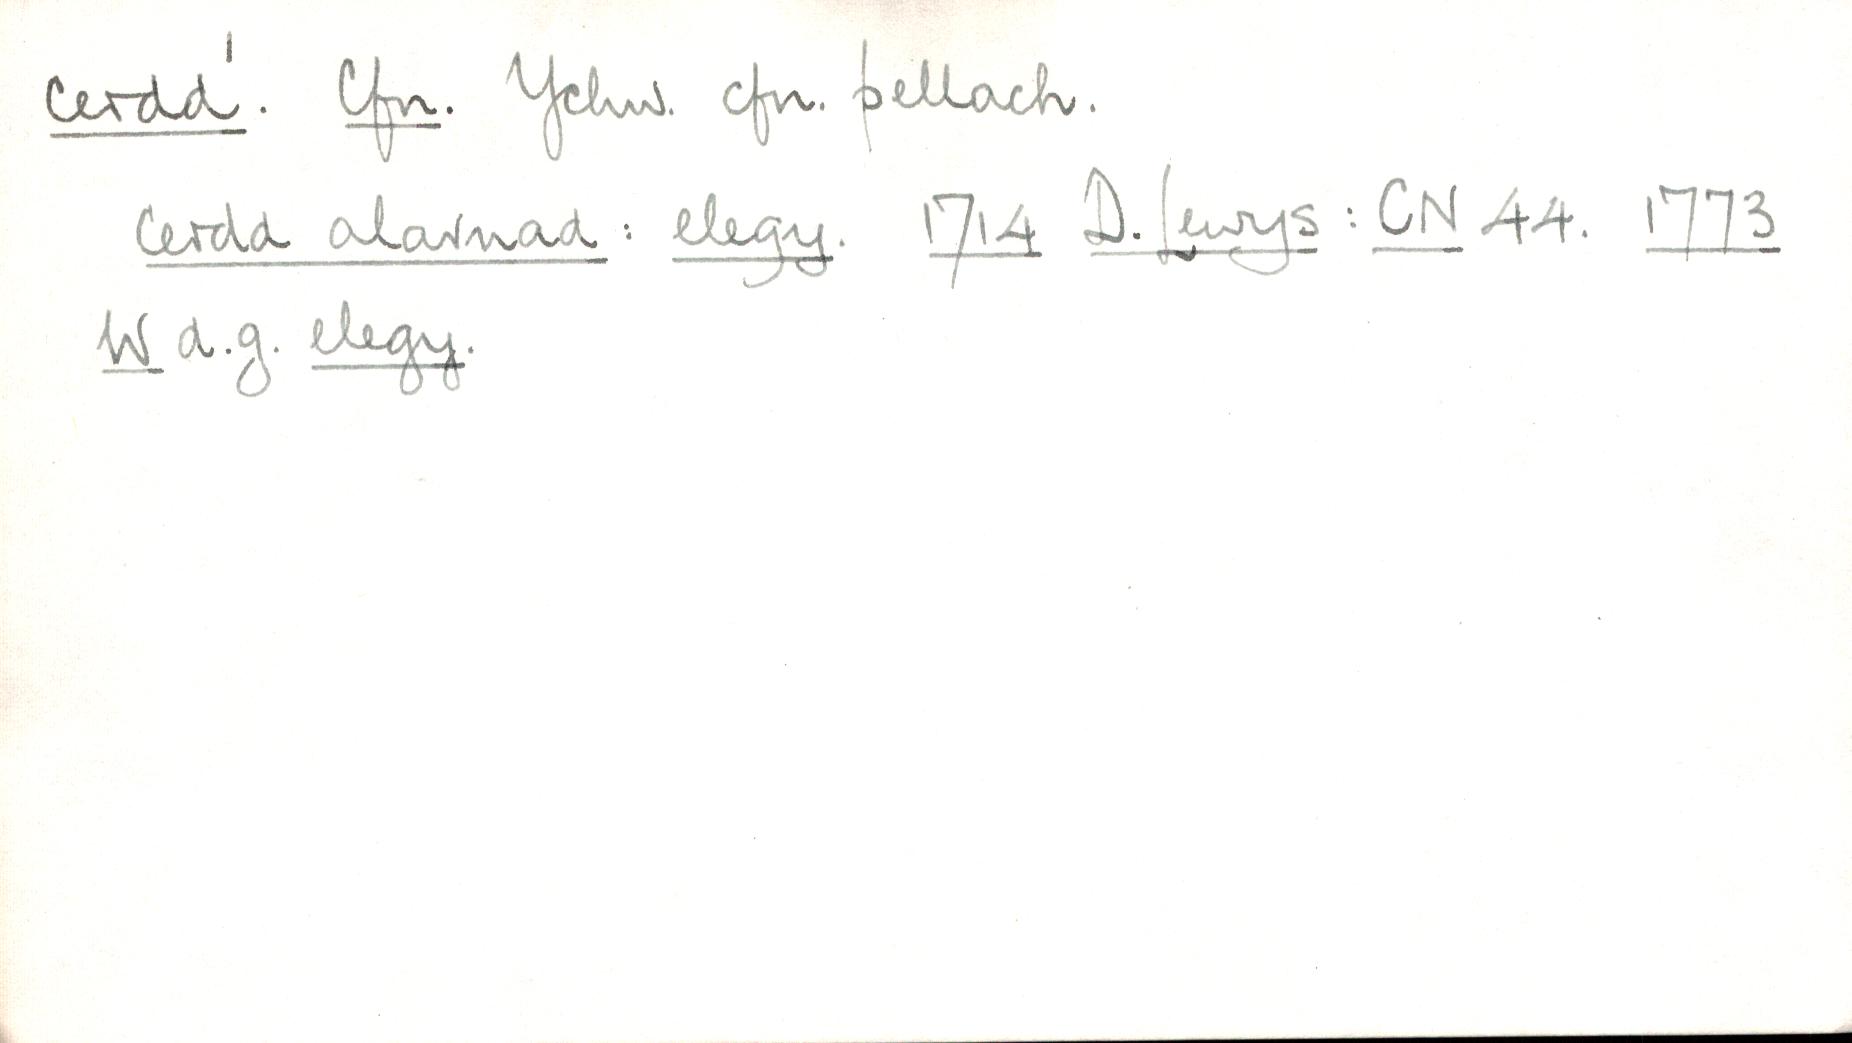 cerdd¹. Cfn. Ychw. cfn. pellach.
cerdd alarnad: elegy. 1714 D. Lewys: CN 44. 1773
W d.g. elegy.